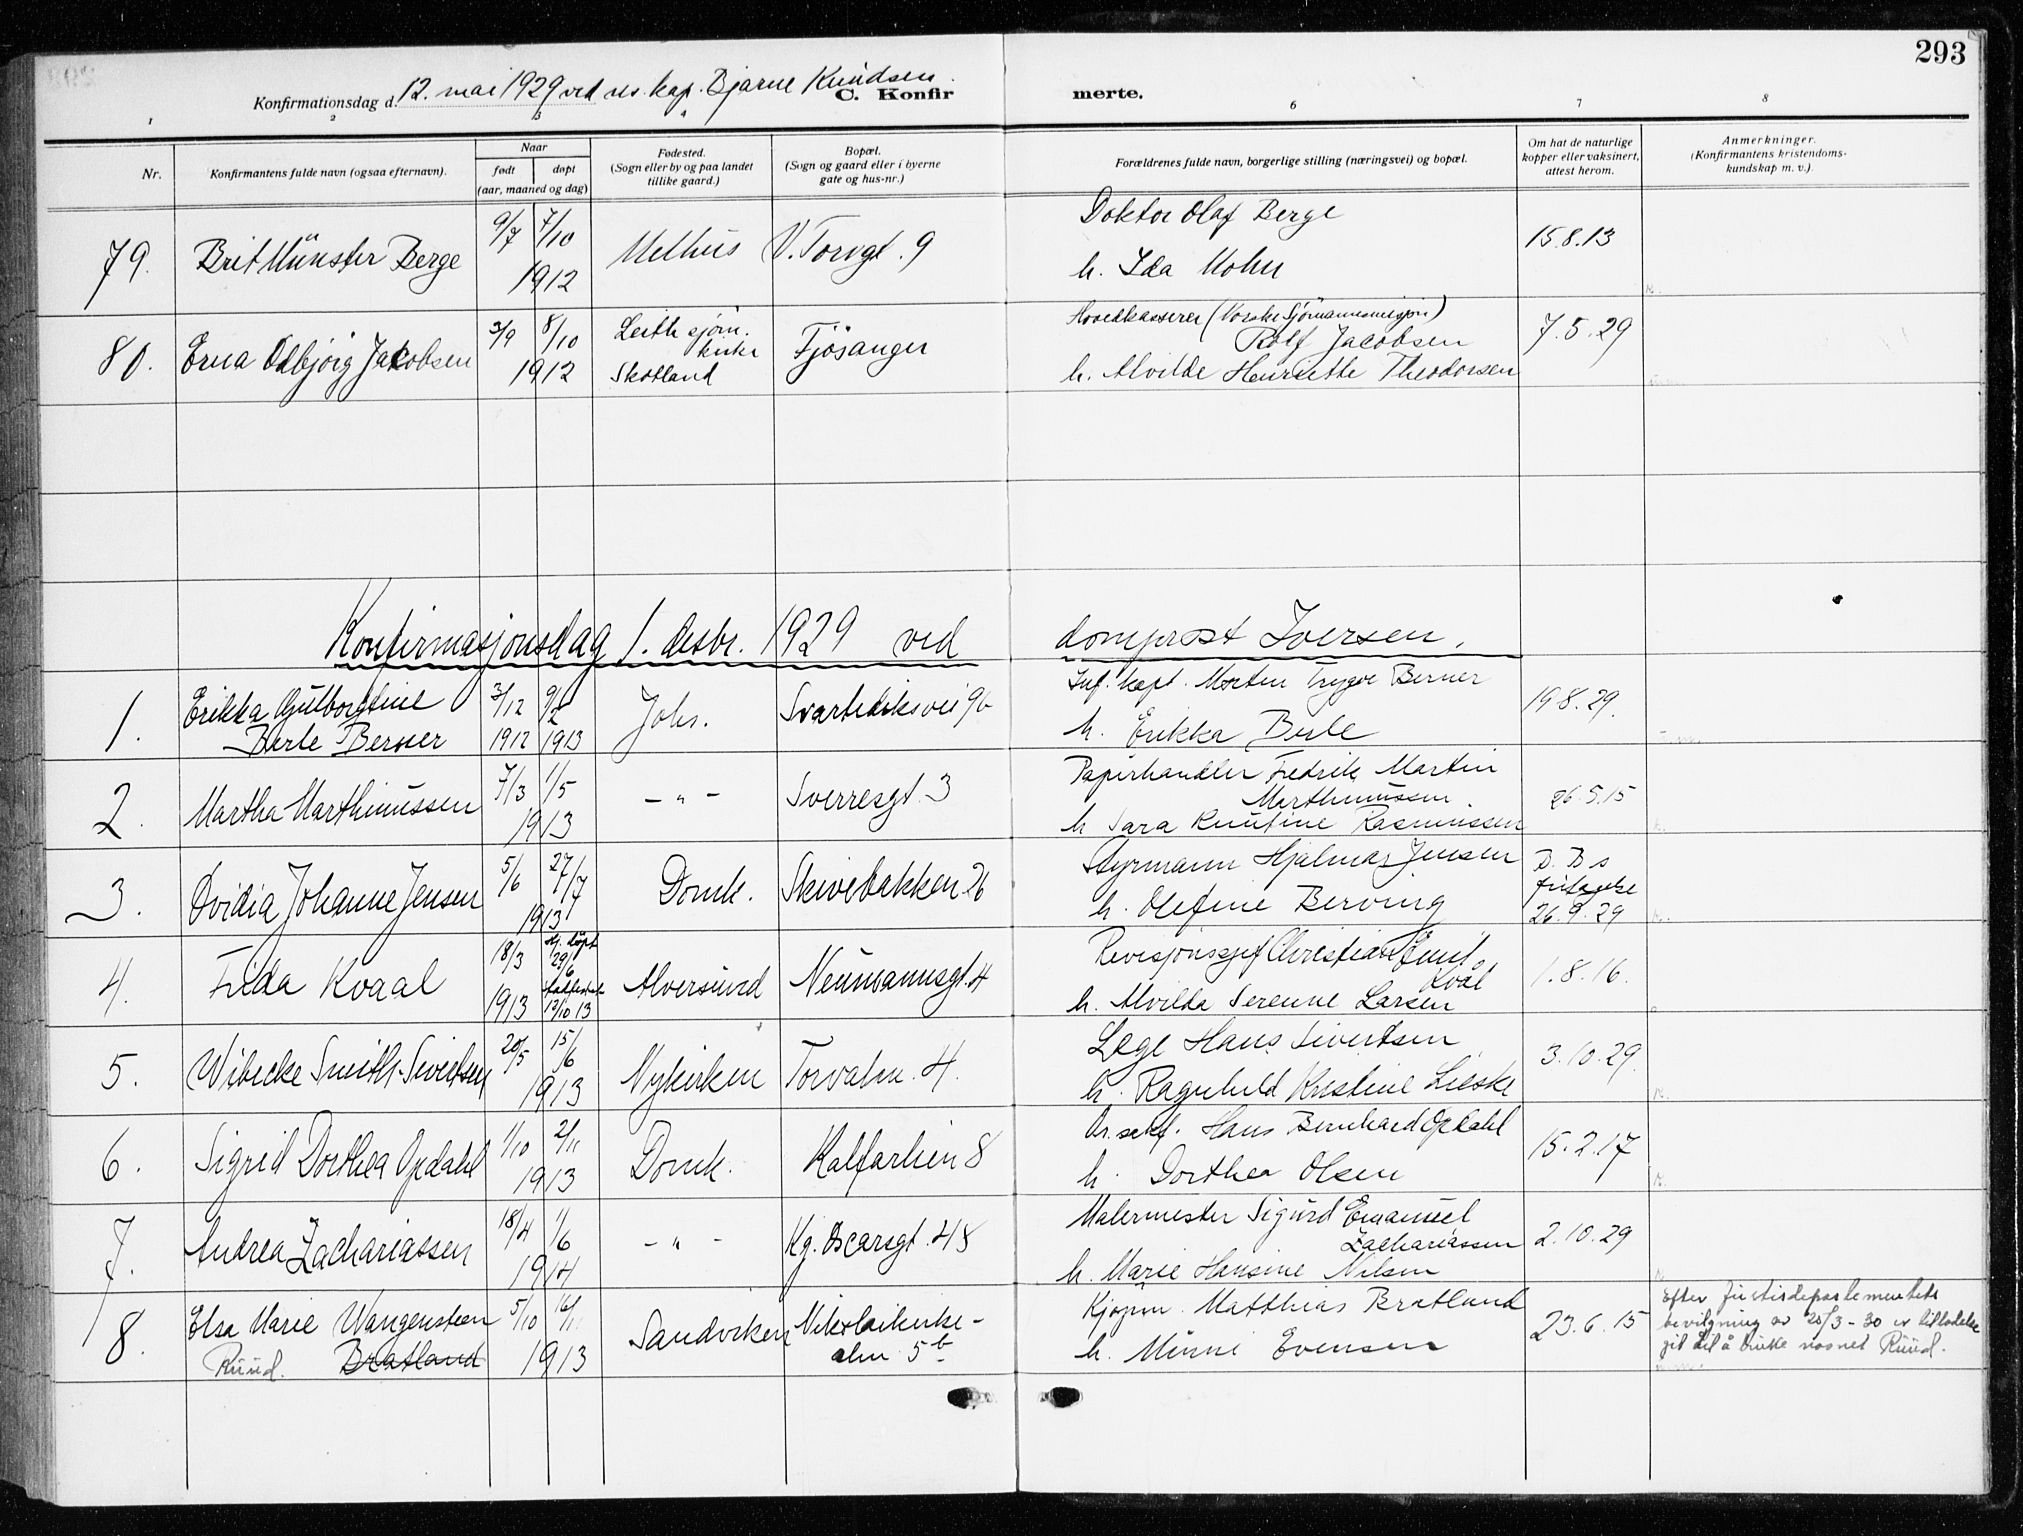 293
Konfirmationsdag d. 12. mai 1929 ved res. kap. Bjarne Knudsen.
C. Konfir merte.
1 2 3 4 6 7 8
Nr.
Konfirmantens fulde navn (ogsaa efternavn).
Naar
født døpt
(aar, maaned og dag)
Fødested.
(Sogn eller by og paa landet
tillike gaard.)
Bopæl.
(Sogn og gaard eller i byerne
gate og hus-nr.)
Forældrenes fulde navn, borgerlige stilling (næringsvei) og bopæl.
Om hat de naturlige
kopper eller vaksinert,
attest herom.
Anmerkninger.
(Konfirmantens kristendoms-
kundskap m. v.).
79. Brit Münster Berge 9/7 7/10 1912 Melhus V. Torvgt. 9
Doktor Olaf Berge
h. Ida Mohn
15.8.13
80. Erna Odbjörg Jakobsen 3/9 8/10 1912
Leith sjöm.
kirke
Skotland
Fjösanger
Hovedkasserer (Norske Sjömannsmisjon)
Rolf Jacobsen
h. Alvilde Henriette Theodorsen
7.5.29
Konfirmasjonsdag 1. desbr. 1929 ved domprost Iversen.
1. Erikka Gulborgtine
Berle Berner
3/12 1912 9/2 1913 Johs. Svartediksvei 9b
Inf. kapt. Morten Trygve Berner
h. Erikka Berle
19.8.29.
2. Martha Marthinussen 7/3 1/5 1913 - " - Sverresgt. 3
Papirhandler Fredrik Martin
Marthinussen.
h. Sara Knutine Rasmussen
26.5.15
3. Ovidia Johanne Jensen 5/6 27/7 1913 Domk. Skivebakken 26
Styrmann Hjalmar Jensen
h. Olefine Berving
D. B s
fritagelse
26.9.29
4. Frida Kvaal 18/3 1913
Hj. döpt
29/6
stadfestet
12/10 13
Alversund Neumannsgt. 4
Revisjonssjef Christian Emil
Kvål
h. Alvilda Serenne Larsen
1.8.16.
5. Wibecke Smith-Sivertsen 20/5 15/6 1913 Nykirken Torvalm. 4.
Læge Hans Sivertsen
h. Ragnhild Kristine Lieske
3.10.29.
6. Sigrid Dorthea Opdahl 1/10 2/11 1913 Domk. Kalfarlien 8
Hans Bernhard Opdahl
h. Dorthea Olsen
15.2.17
7. Andrea Zachariassen 18/4 1/6 1914 - " - Kg. Oscarsgt. 48
Malermester Sigurd Emanuel
Zachariassen
h. Marie Hansine Nilsen
2.10.29
8. Elsa Marie Wangensteen
Ruud. Bratland
5/10 16/11 1913 Sandviken
Nikolaikirke-
alm 5b
Kjøpm. Matthias Bratland
h. Minni Evensen
23.6.15
Efter Justisdepartementets
bevilgning av 25/3-30 er tilladelse
git til å bruke navnet Ruud.